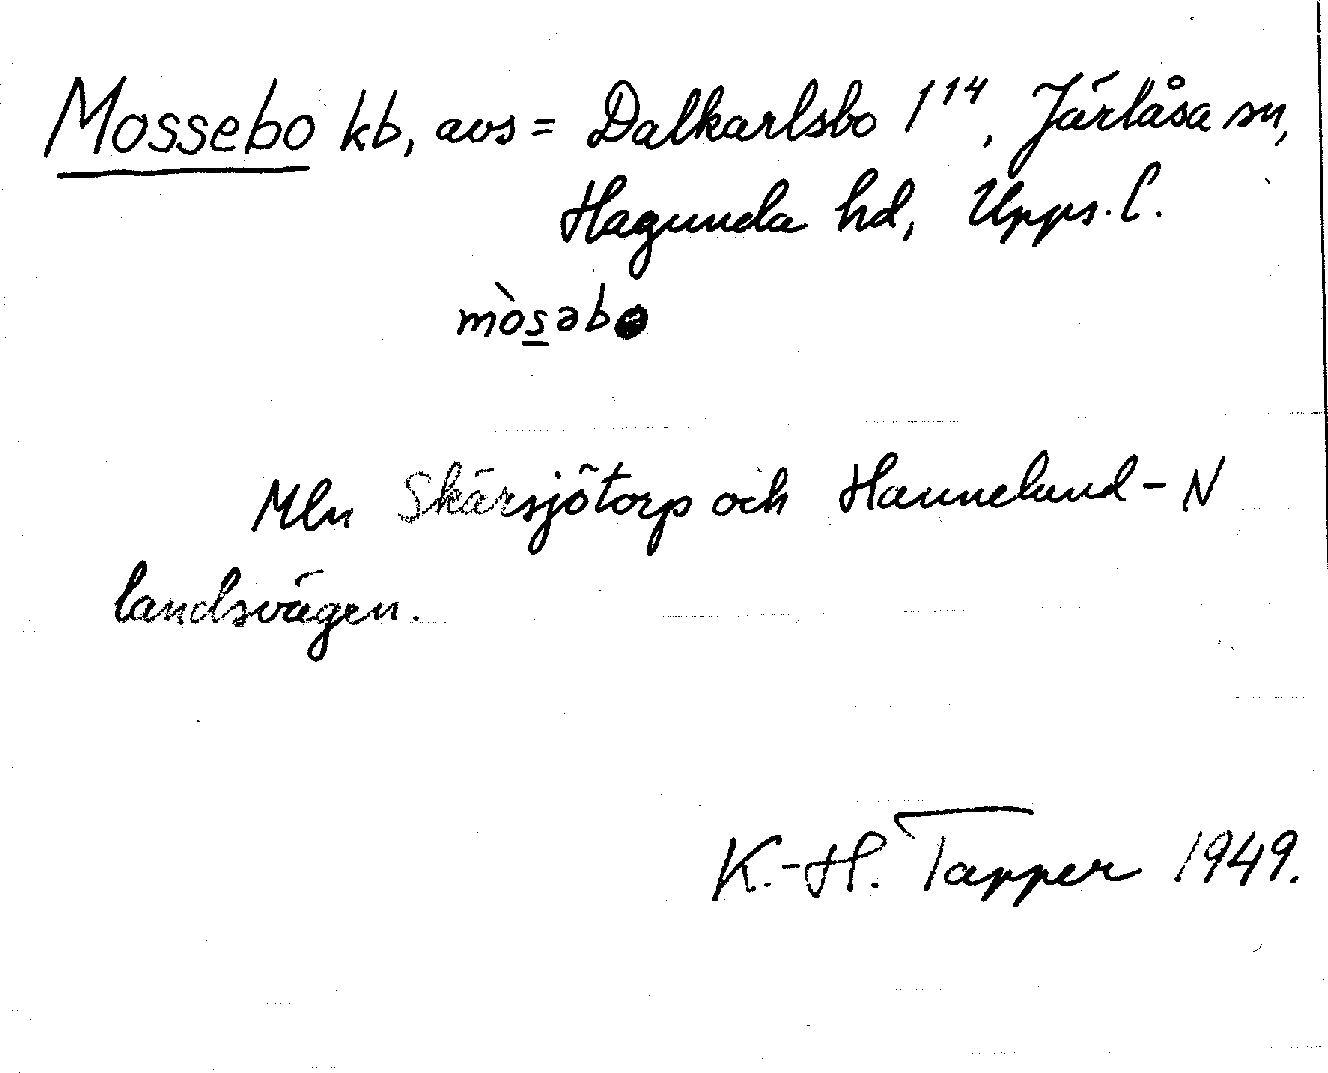 Mossebo kb, avs = Dalkarlsbo 1¹⁴, Järlåsa sn,
Hagunda hd, Upps. l.
mòsəbo
Mln Skärsjötorp och Hannelund - N
landsvägen.
K.-H. Tapper 1949.